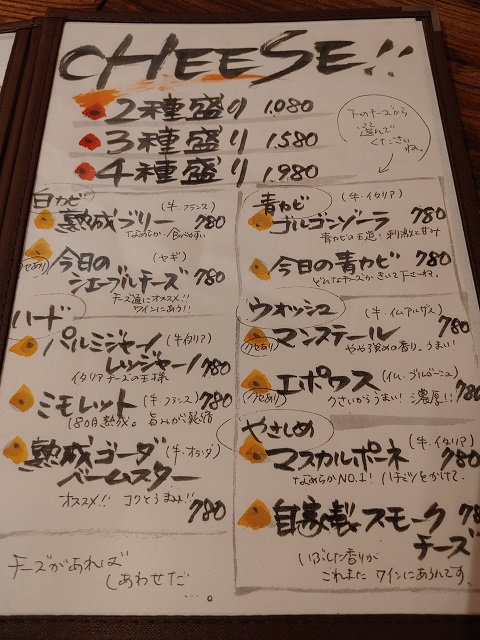 CHEESE!!
2種盛り 1.080
3種盛り 1.580
4種盛り 1.980
下のチーズから
選んで
ください
ね。
白カビ
熟成ブリー (牛・フランス) 780
なめらか・食べやすい
クセあり 今日の (ヤギ)
シェーブルチーズ 780
チーズ通にオススメ!!
ワインにあう!!
ハード
パルミジャーノ (牛イタリア)
レッジャーノ 780
イタリアチーズの王様
ミモレット (牛・フランス) 780
180日熟成。旨みが
熟成ゴーダ (牛・オランダ)
バームスター
オススメ!! コクとうまみ!! 780
チーズがあれば
しあわせだ
...。
青カビ (牛・イタリア)
ゴルゴンゾーラ 780
青カビの王道!刺激と甘み
今日の青カビ 780
どんなチーズかきいて下さーね。
ウォッシュ (牛・仏アルザス)
マンステール 780
クセあり やや強めの香り。うまい!
エポワス (仏・ブルゴーニュ) 780
クセあり くさいからうまい! 濃厚!!
やさしめ (牛・イタリア)
マスカルポーネ 780
なめらかNO.1! ハチミツをかけて。
自家製スモーク 780
チーズ
いぶした香りが
これまた ワインにあうんです。